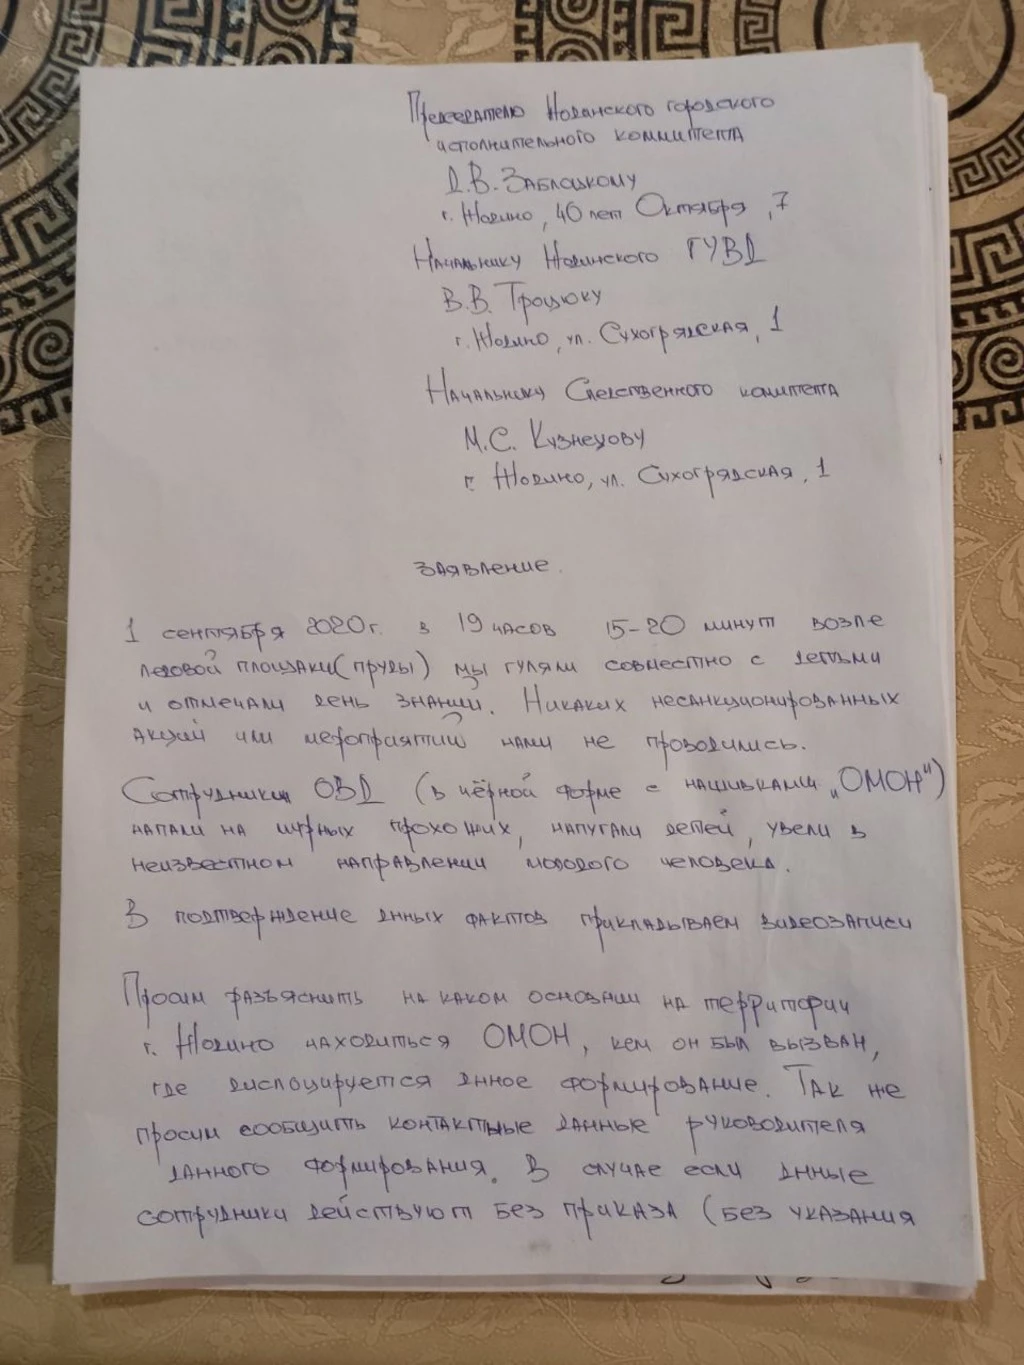 Председателю Жодинского городского
исполнительного коммитета
Д.В. Заблоцкому
г. Жодино, 40 лет Октября, 7
Начальнику Жодинского ГУВД
В.В. Троцюку
г. Жодино, ул. Сухогрядская, 1
Начальнику Следственного комитета
М.С. Кузнецову
г. Жодино, ул. Сухогрядская, 1
заявление.
1 сентября 2020г. в 19 часов 15-20 минут возле
ледовой площадки(пруды) мы гуляли совместно с детьми
и отмечали день знаний. Никаких несанкционированных
акций или мероприятий нами не проводились.
Сотрудники ОВД (в чёрной форме с нашивками „ОМОН")
напали на мирных прохожих, напугали детей, увели в
неизвестном направлении молодого человека.
В подтверждение днных фактов прикладываем видеозаписи
Просим разъяснить на каком основании на территории
г. Жодино находиться ОМОН, кем он был вызван,
где дислоцируется днное формирование. Так же
просим сообщить контактные данные руководителя
данного формирования. В случае если днные
сотрудники действуют без приказа (без указания